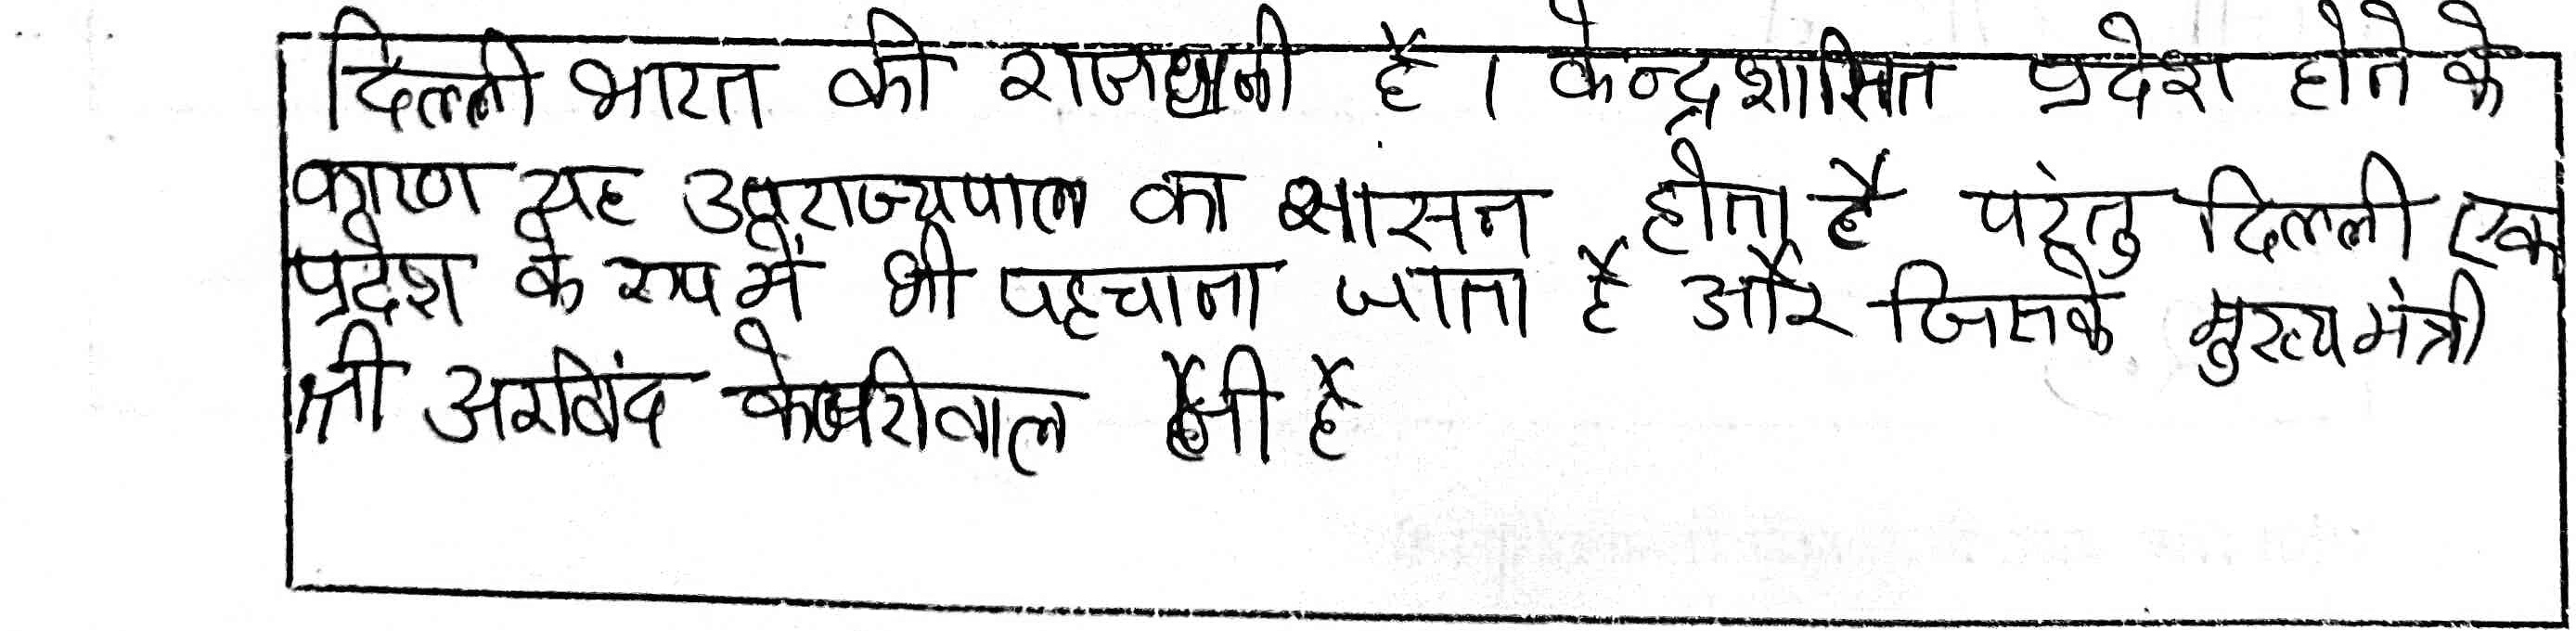 दिल्ली भारत की राजधानी है । केन्द्रशासित प्रदेश होने के
कारण यह उपराज्यपाल का शासन होता है परंतु दिल्ली एक
प्रदेश के रूप में भी पहचाना जाता है और जिसके मुख्यमंत्री
श्री अरविंद केजरीवाल जी है